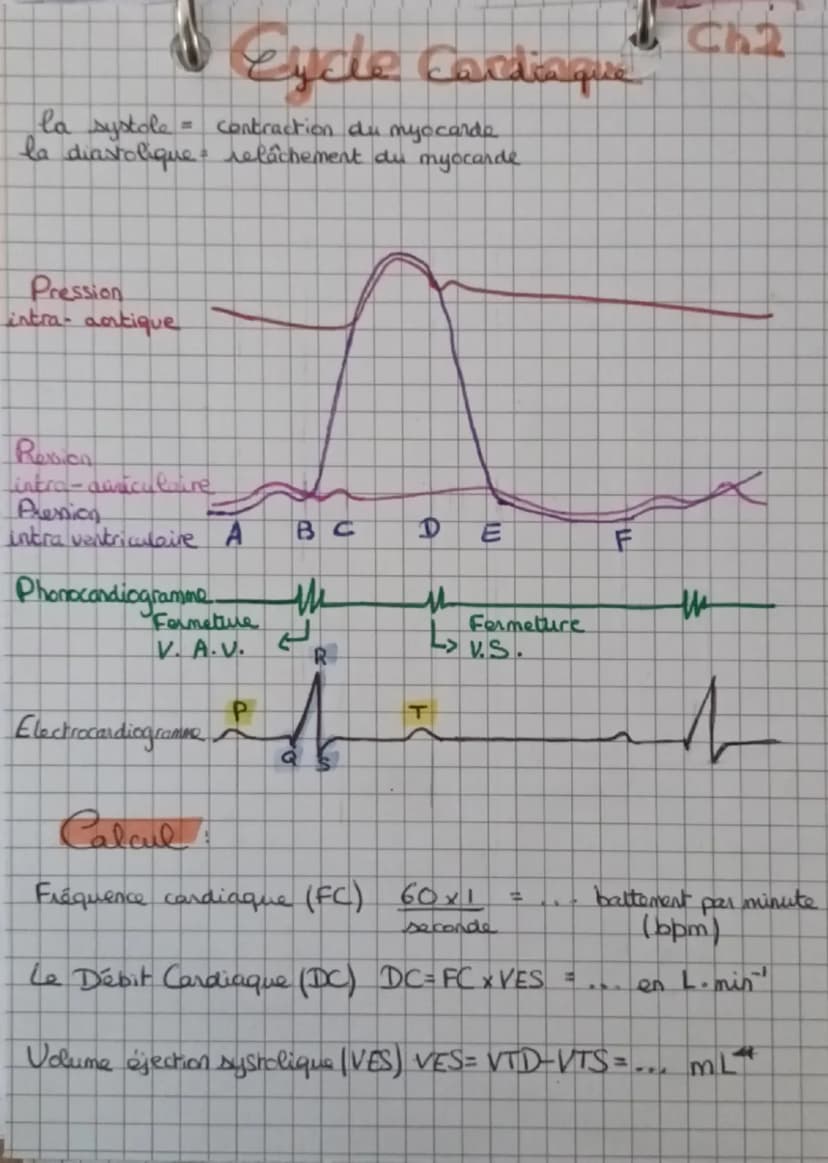 Cycle Cardiaque
Ch2
la systole = contraction du myocarde
la diastolique = relâchement du myocarde
Pression
intra-aortique
Pression
intra-auriculaire
Pression
intra ventriculaire
A B C D E F
Phonocardiogramme
Fermeture
V. A. V.
Fermeture
V.S.
R
P
T
Electrocardiogramme
Q S
Calcul :
Fréquence cardiaque (FC) 60 x 1 / seconde = ... battement par minute
(bpm)
Le Débit Cardiaque (DC) DC = FC x VES = ... en L.min⁻¹
Volume éjection systolique (VES) VES = VTD-VTS = ... mL